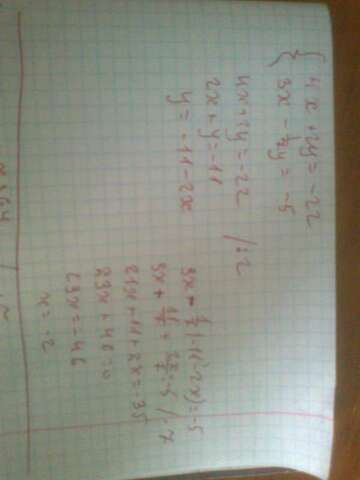 { 4x + 2y = -22
3x - 1/7 y = -5
4x + 2y = -22 /:2
2x + y = -11
y = -11 - 2x
3x - 1/7 (-11 - 2x) = -5
3x + 11/7 + 2x/7 = -5 /·7
21x + 11 + 2x = -35
23x + 46 = 0
23x = -46
x = -2